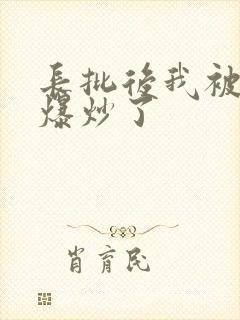 長批後我被
爆炒了
肖育民